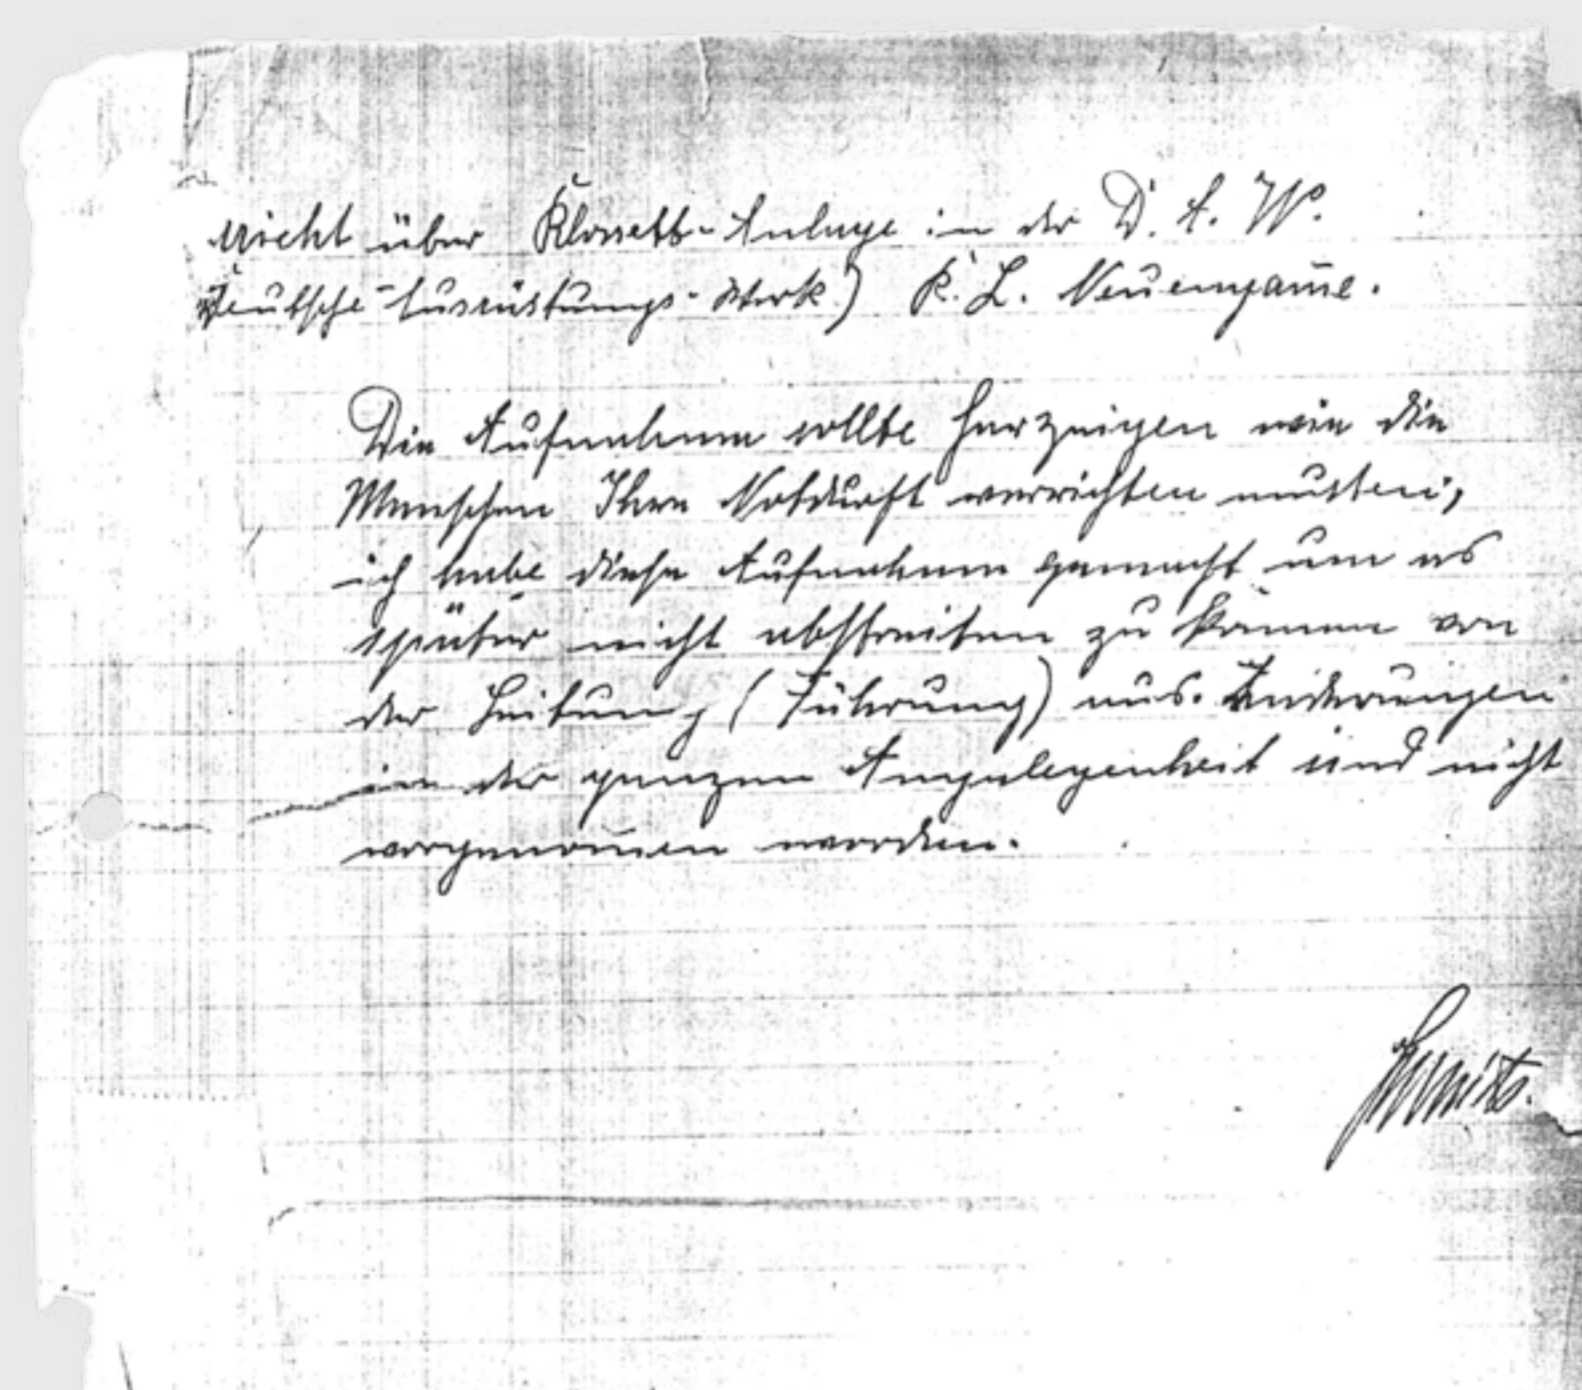 ericht über Klosett-Anlage in der D. A. W.
Deutsche-Ausrüstungs-Werk) K. L. Neuengam̄e.
Die Aufnahme sollte herzeigen wie die
Menschen Ihre Notdurft verrichten mussten,
ich habe diese Aufnahme gemacht um es
später nicht abstreiten zu können von
der Leitung (Führung) aus. Änderungen
in der ganzen Angelegenheit sind nicht
vorgenom̄en worden.